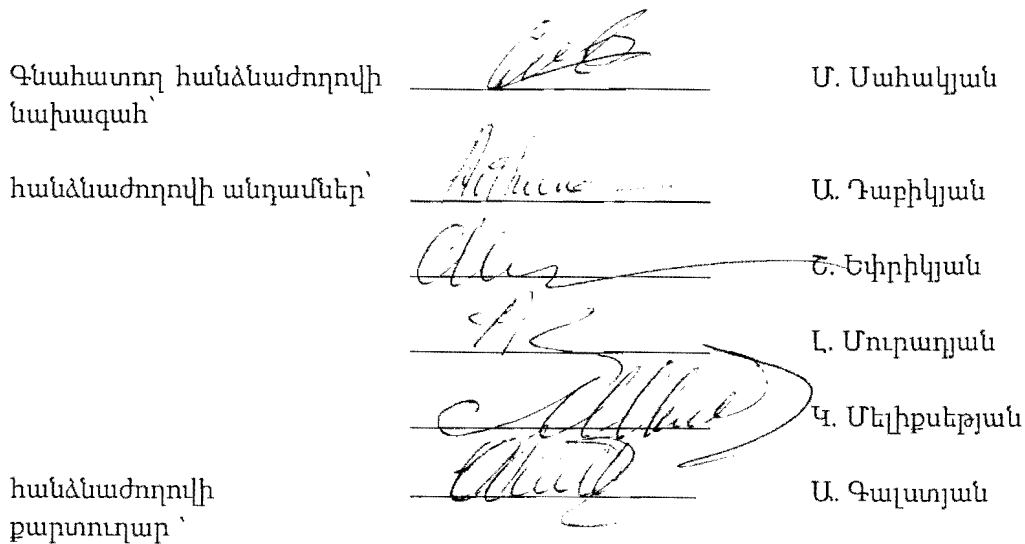 Գնահատող հանձնաժողովի
նախագահ՝
Մ. Սահակյան
հանձնաժողովի անդամներ՝
Ա. Դաբիկյան
Շ. Եփրիկյան
Լ. Մուրադյան
Կ. Մելիքսեթյան
հանձնաժողովի
քարտուղար ՝
Ա. Գալստյան